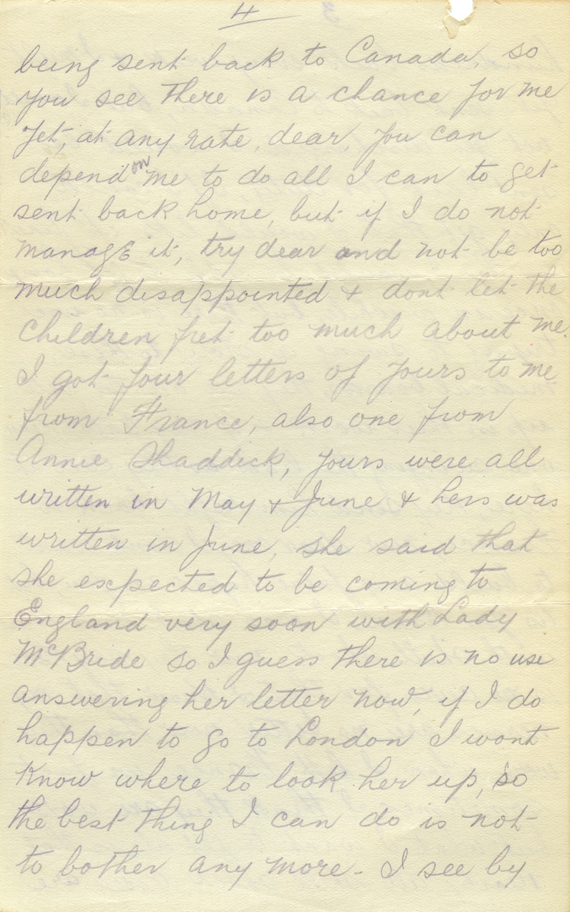 4
being sent back to Canada, so
you see there is a chance for me
yet, at any rate, dear, you can
depend on me to do all I can to get
sent back home, but if I do not
manage it, try dear and not be too
much disappointed & dont let the
children fret too much about me.
I got four letters of yours to me
from France, also one from
Annie Shaddick, yours were all
written in May & June & hers was
written in June, she said that
she expected to be coming to
England very soon with Lady
McBride so I guess there is no use
answering her letter now, if I do
happen to go to London I wont
know where to look her up, so
the best thing I can do is not
to bother any more - I see by